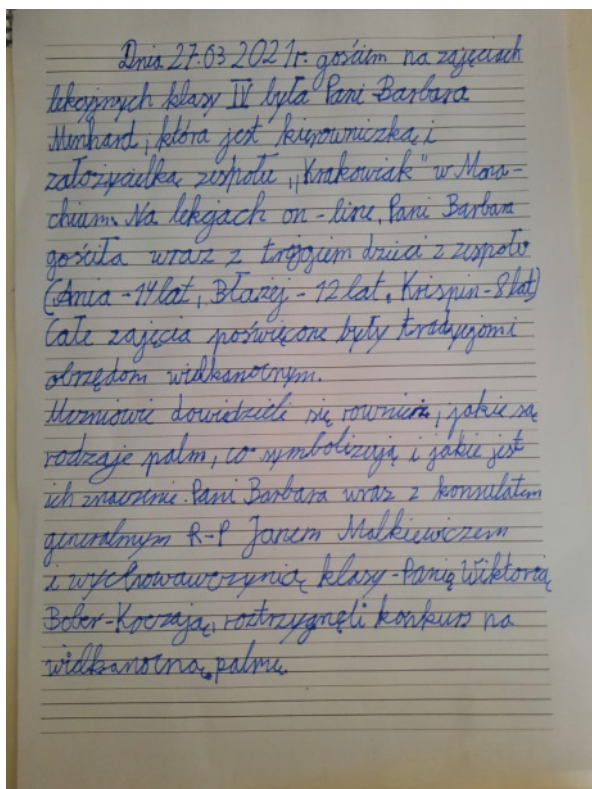 Dnia 27.03.2021r. gościem na zajęciach
lekcyjnych klasy IV była Pani Barbara
Menhard, która jest kierowniczką i
założycielką zespołu „Krakowiak" w Mona-
chium. Na lekcjach on-line, Pani Barbara
gościła wraz z trójgiem dzieci z zespołu
(Ania - 14 lat, Błażej - 12 lat, Krispin - 8 lat)
Całe zajęcia poświęcone były tradycjom i
obrzędom wielkanocnym.
Uczniowie dowiedzieli się również, jakie są
rodzaje palm, co symbolizują i jakie jest
ich znaczenie. Pani Barbara wraz z konsulatem
generalnym R-P Janem Malkiewiczem
i wychowawczynią klasy - Panią Wiktorią
Bober-Koczają, roztrzygnęli konkurs na
wielkanocną palmę.